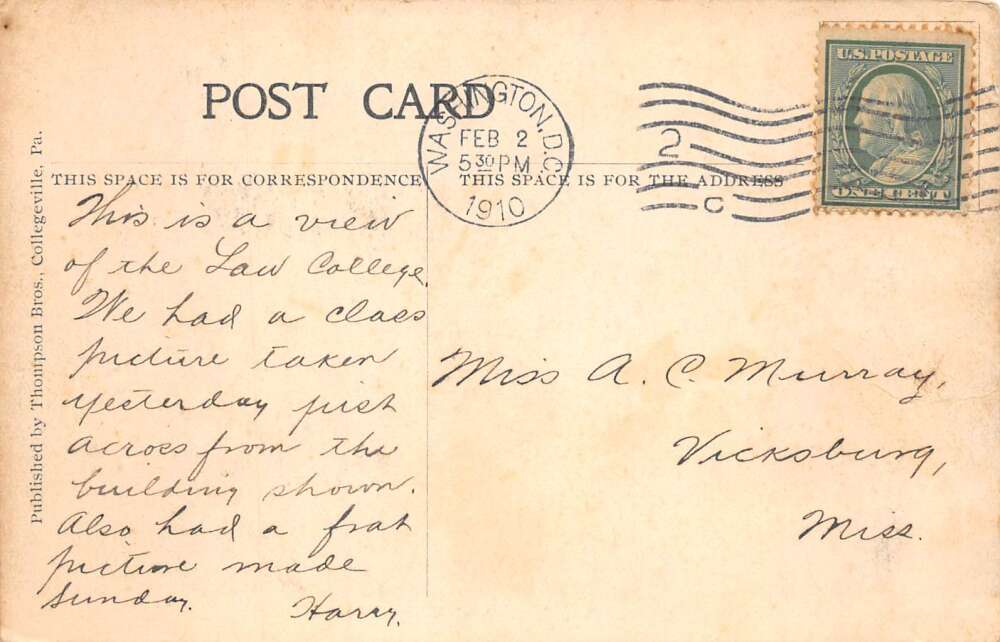 POST CARD
WASHINGTON, D.C.
FEB 2
5 30 PM
1910
2
C
U.S. POSTAGE
ONE CENT
THIS SPACE IS FOR CORRESPONDENCE
THIS SPACE IS FOR THE ADDRESS
Published by Thompson Bros., Collegeville, Pa.
This is a view
of the Law College.
We had a class
picture taken
yesterday just
across from the
building shown.
Also had a frat
picture made
Sunday.
Harry.
Miss A. C. Murray,
Vicksburg,
Miss.